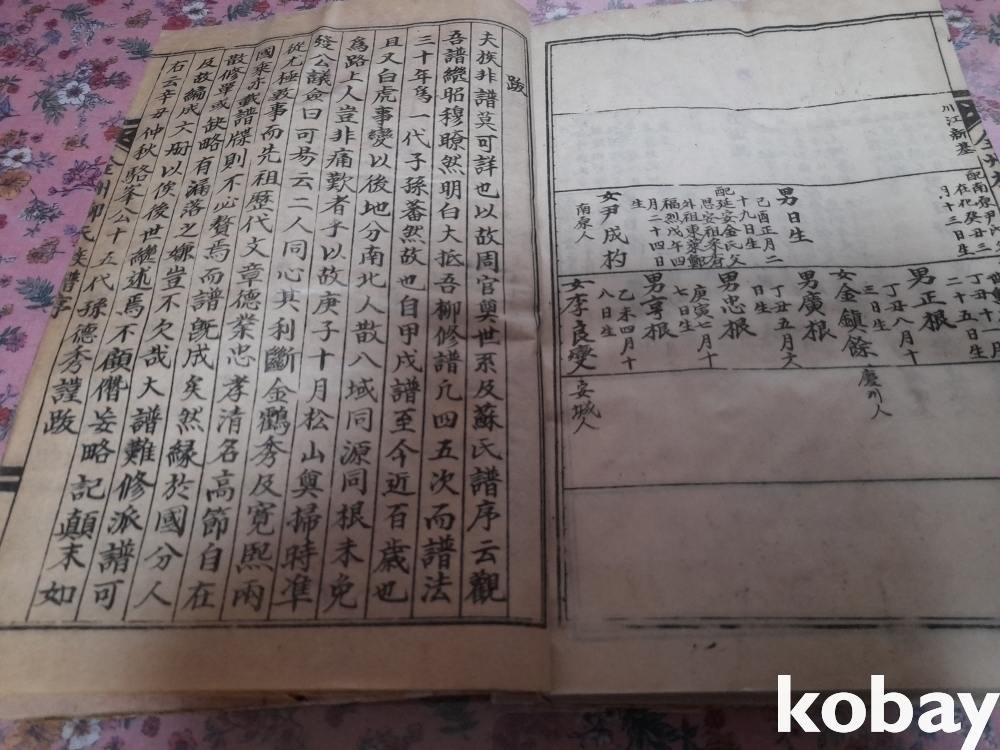 川江新基
配南原尹氏
在化癸丑三
月十三日生
男日生
己酉正月二
十九日生
配延安金氏父
思安祖來春
外祖東萊鄭
福烈戊年四
月二十四日
生
女尹成杓
南原人
丁丑十一月
二十五日生
男正根
丁丑八月十
三日生
女金鎮餘
慶州人
男廣根
丁丑五月六
日生
男忠根
庚寅七月十
七日生
男亨根
乙未四月十
八日生
女李良燮
安城人
跋
夫族非譜莫可詳也以故周官奠世系及蘇氏譜序云觀
吾譜纔昭穆瞭然明白大抵吾柳修譜凡四五次而譜法
三十年爲一代子孫蕃然故也自甲戌譜至今近百歲也
且又白虎事變以後地分南北人散八域同源同根未免
爲路上人豈非痛歎者乎以故庚子十月松山奠掃時準
發公議僉曰可易云二人同心其利斷金鶴秀及寬熙兩
從尤極敦事而先祖歷代文章德業忠孝清名高節自在
國乘亦載譜牒則不必贅焉而譜旣成矣然緣於國分人
散修單或缺略有漏落之嫌豈不欠哉大譜難修派譜可
及故編成六冊以俟後世繼述焉不顧僭妄略記顚末如
右云辛丑仲秋駱峯公十五代孫德秀謹跋
全州柳氏族譜序
kobay